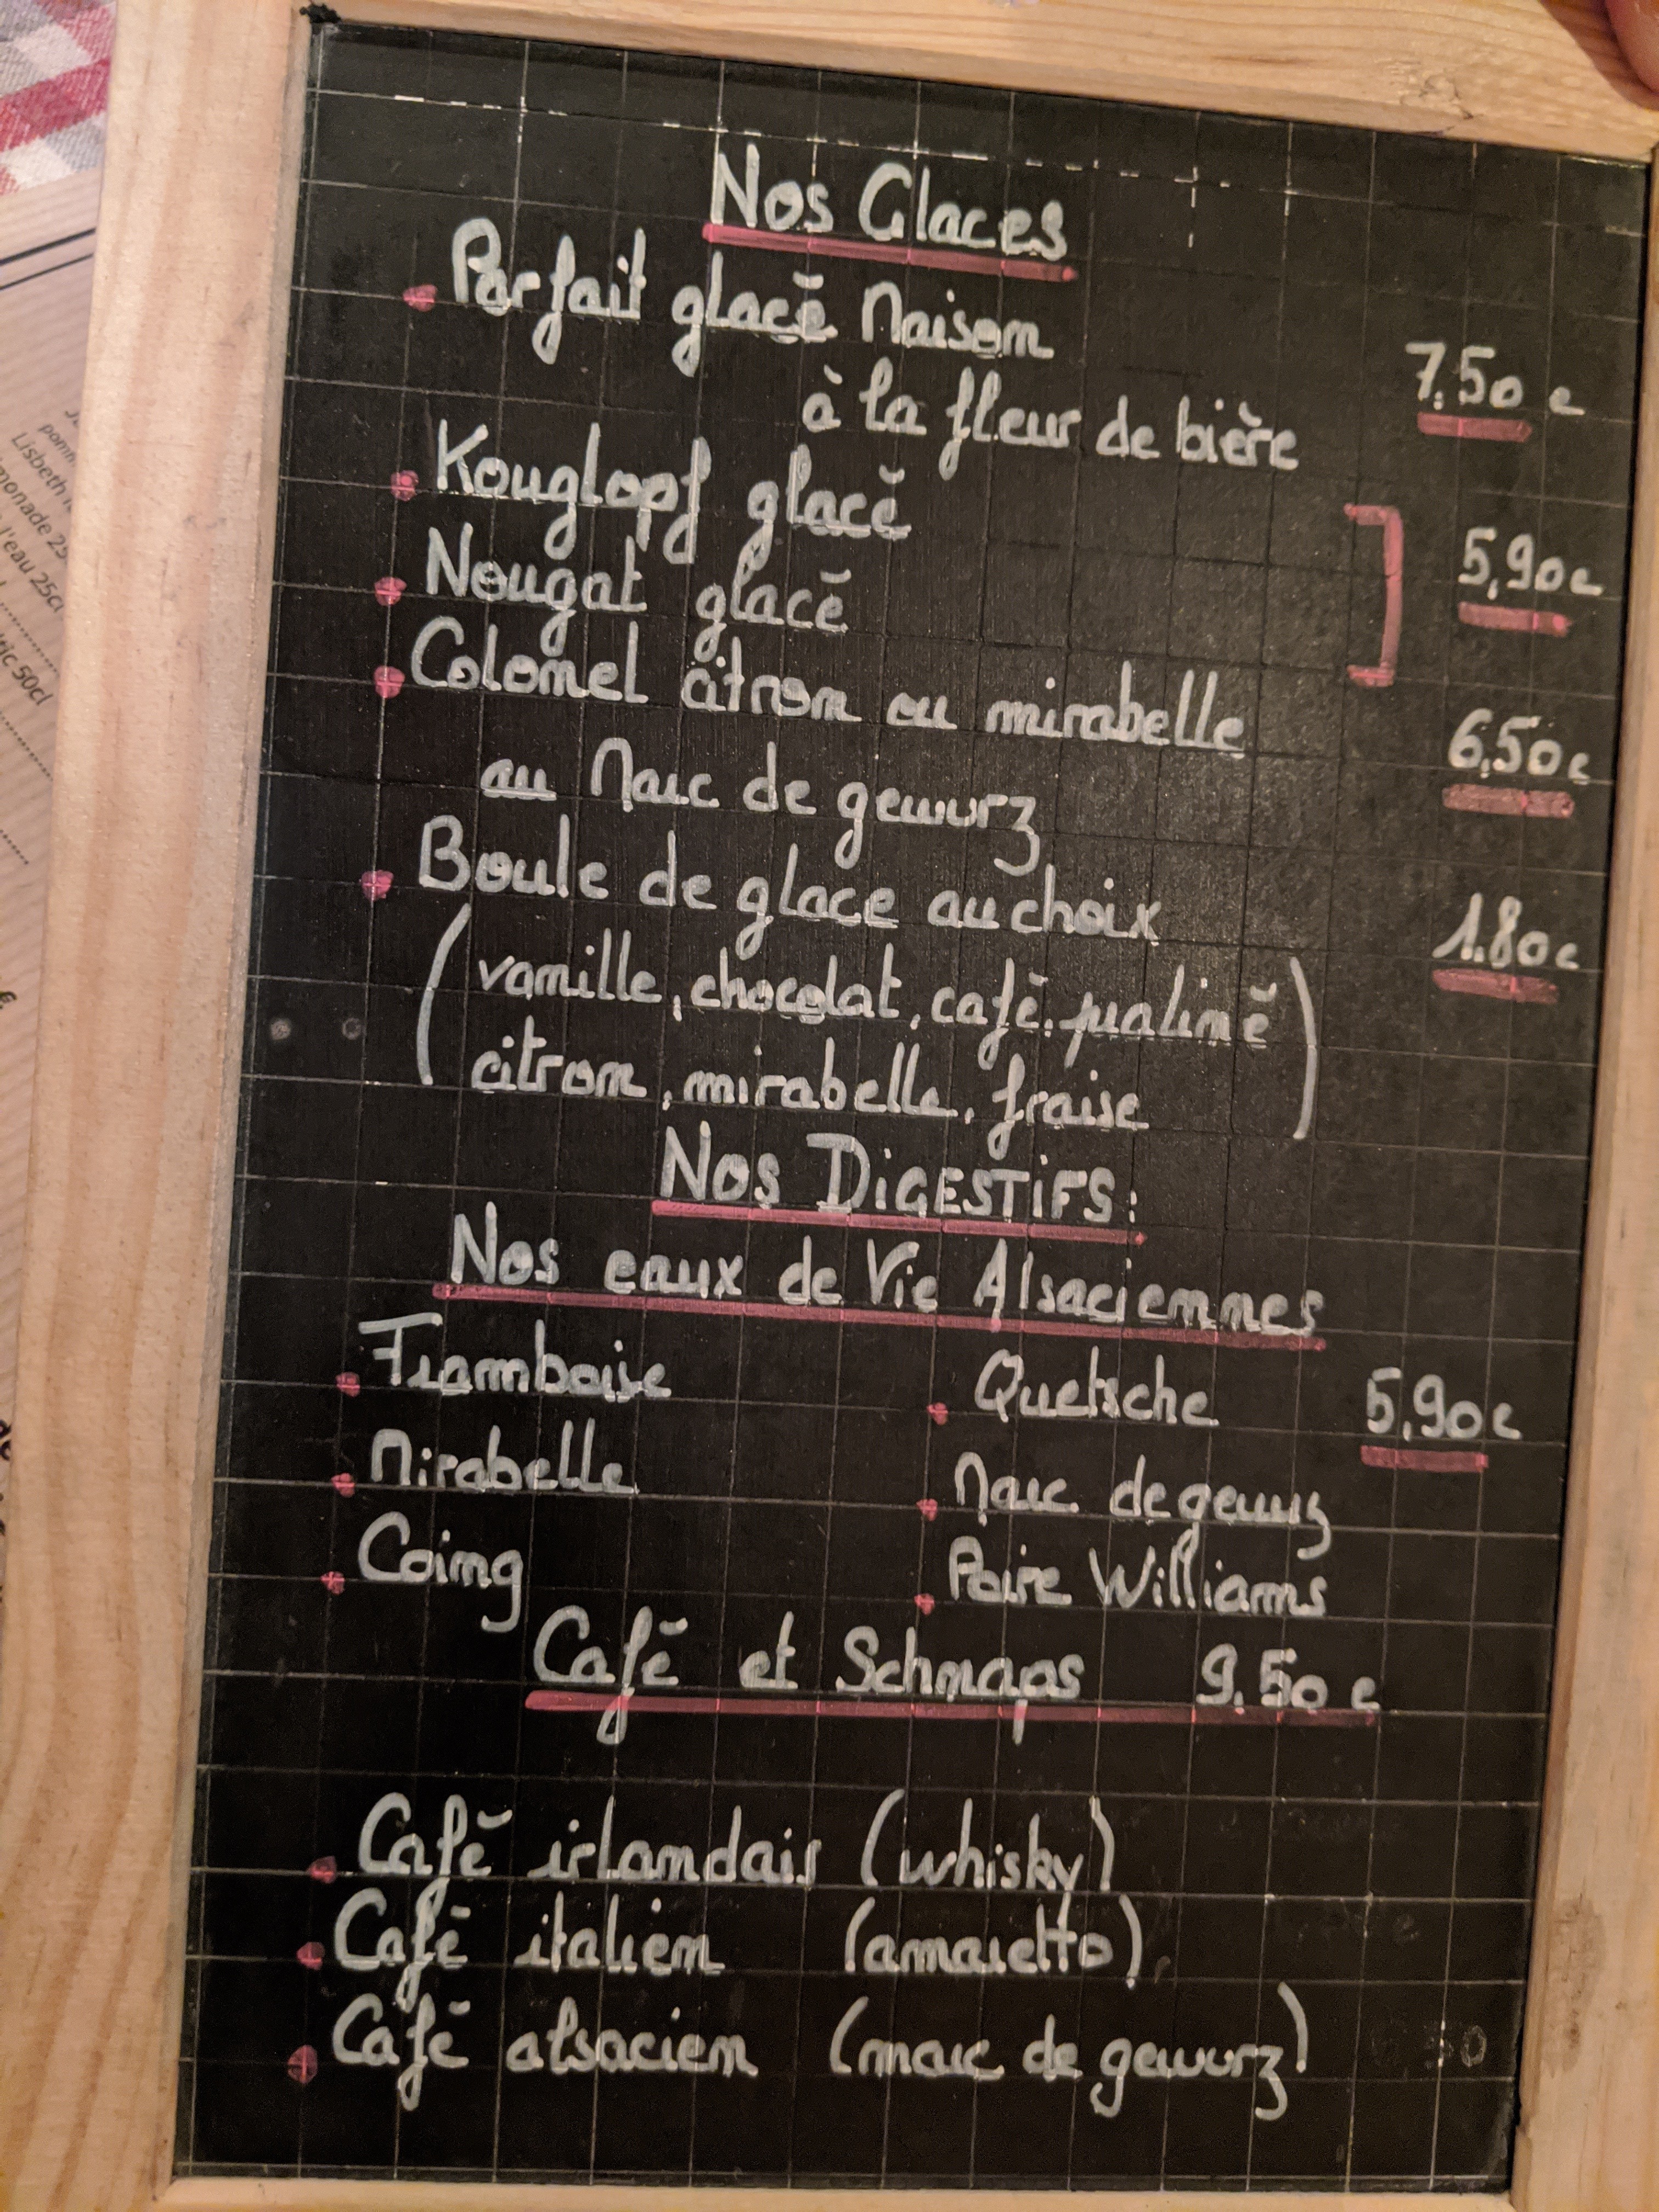 Nos Glaces
Parfait glacé Maison
à la fleur de bière 7,50 €
Kouglopf glacé
Nougat glacé 5,90 €
Colonel citron ou mirabelle 6,50 €
au Marc de gewurz
Boule de glace au choix 1.80 €
(vanille, chocolat, café, praliné
citron, mirabelle, fraise)
Nos DiGESTiFS:
Nos eaux de Vie Alsaciennes
Framboise Quetsche 5,90 €
Mirabelle Marc de gewurz
Coing Poire Williams
Café et Schnaps 9,50 €
Café irlandais (whisky)
Café italien (amaretto)
Café alsacien (marc de gewurz)
Lisbeth
l'eau 25cl
50cl